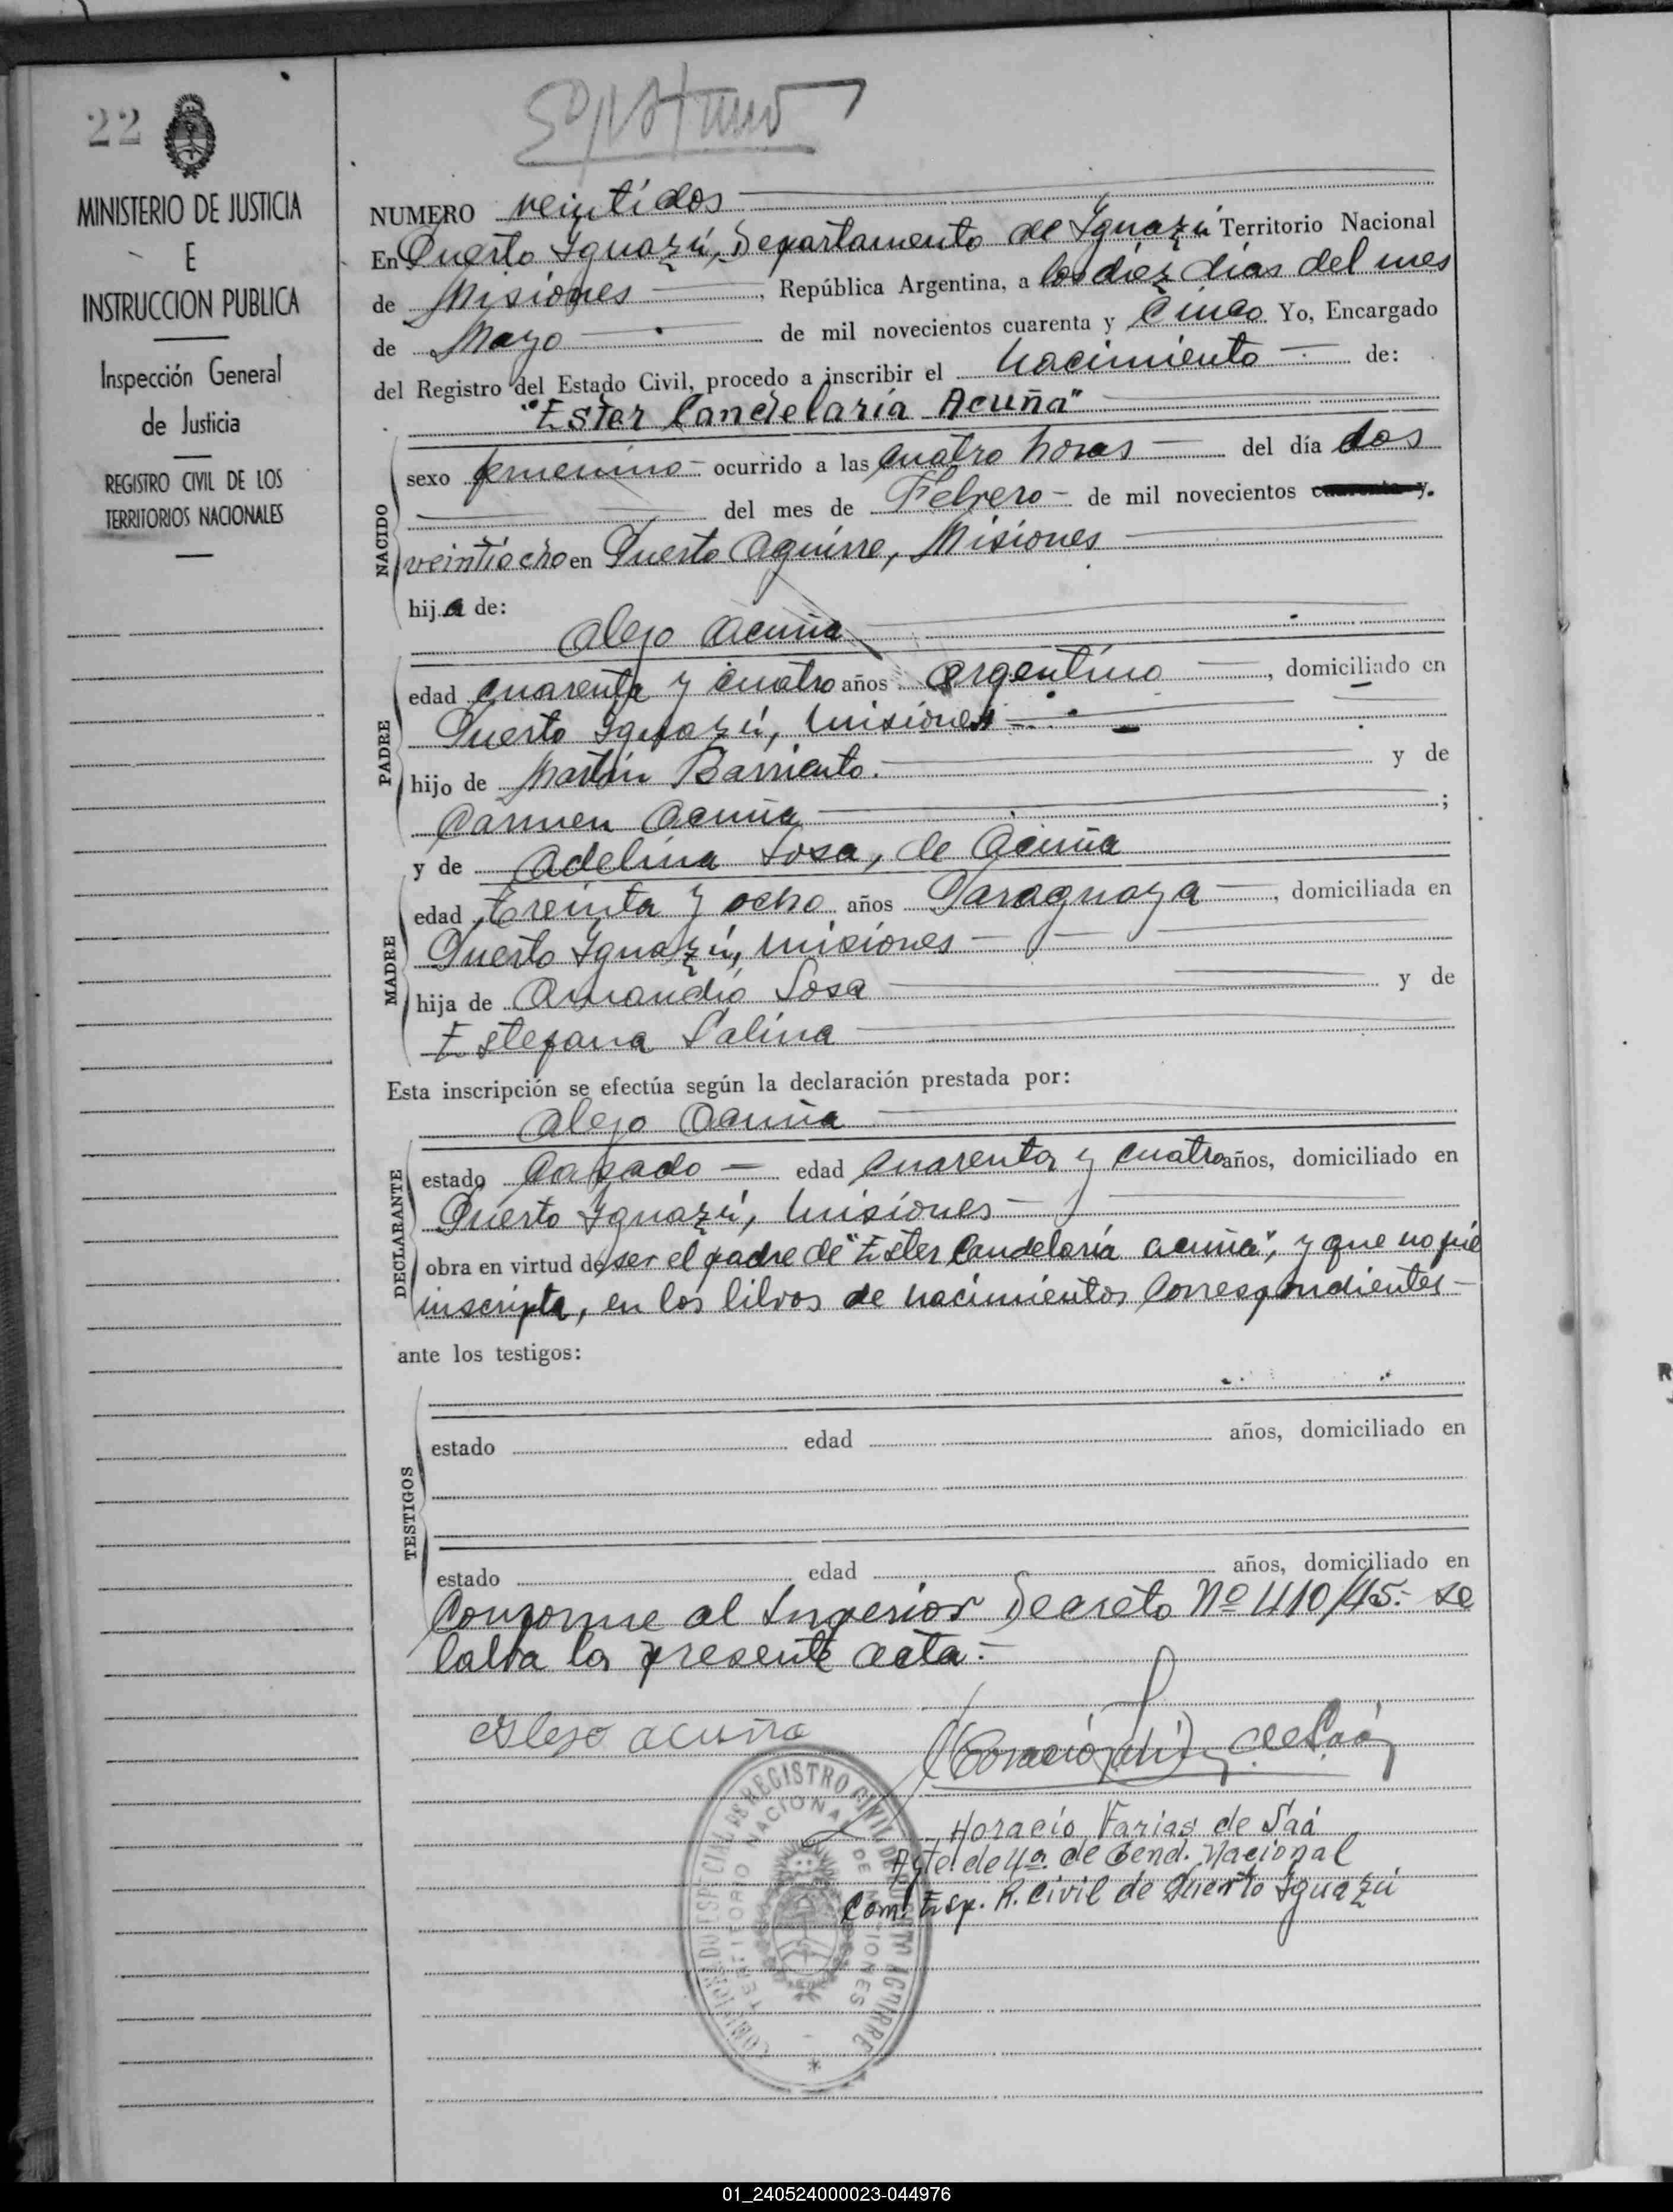 22
MINISTERIO DE JUSTICIA
E
INSTRUCCION PUBLICA
Inspección General
de Justicia
REGISTRO CIVIL DE LOS
TERRITORIOS NACIONALES
NUMERO veintidos
En Puerto Iguazú, Departamento de Iguazú Territorio Nacional
de Misiones, República Argentina, a los diez días del mes
de Mayo de mil novecientos cuarenta y Cinco Yo, Encargado
del Registro del Estado Civil, procedo a inscribir el nacimiento de:
"Ester Candelaria Acuña"
NACIDO
sexo femenino ocurrido a las cuatro horas del día dos
del mes de Febrero de mil novecientos cuarenta y
veintiocho en Puerto Aguirre, Misiones
hija de:
Alejo Acuña
PADRE
edad cuarenta y cuatro años Argentino, domiciliado en
Puerto Iguazú, Misiones
hijo de Martin Barriento. y de
Carmen Acuña;
y de Adelina Sosa, de Acuña
MADRE
edad treinta y ocho años Paraguaya, domiciliada en
Puerto Iguazú, Misiones
hija de Amandio Sosa y de
Estefana Salina
Esta inscripción se efectúa según la declaración prestada por:
Alejo Acuña
DECLARANTE
estado Casado edad cuarenta y cuatro años, domiciliado en
Puerto Iguazú, Misiones
obra en virtud de ser el padre de "Ester Candelaria Acuña", y que no fué
inscripta, en los libros de nacimientos Correspondientes
ante los testigos:
TESTIGOS
estado edad años, domiciliado en
estado edad años, domiciliado en
Conforme al Superior Decreto Nº 410/45.- se
labra la presente acta.-
Alejo acuña
Horacio Farias de Saá
Ayte. de 4a. de Gend. Nacional
Com. Esp. R. Civil de Puerto Iguazú
COMISIONADO ESPECIAL DE REGISTRO CIVIL DE PUERTO AGUIRRE
TERRITORIO NACIONAL DE MISIONES
R
01_240524000023-044976